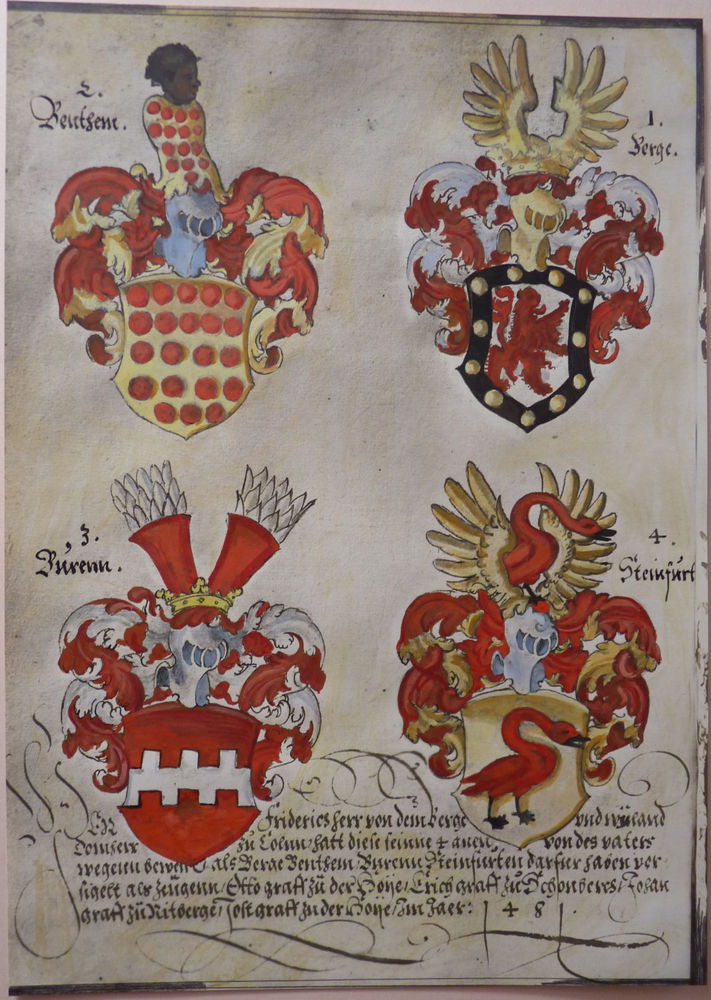 2.
Benthem.
1.
Berge.
3.
Burenn.
4.
Steinfurt
Friderich herr von dem Berge und
Domherr zu Coelnn hatt diese seinne 4 anen von des vaters
wegenn als Berge Benthem Burenn Steinfurten darfur haben ver-
sigelt als zeugenn / Otto graff zu der Hoije / Erich graff zu / Johan
graff zu Ritberge / Jost graff zu der Hoije / Im Jaer: 1481.